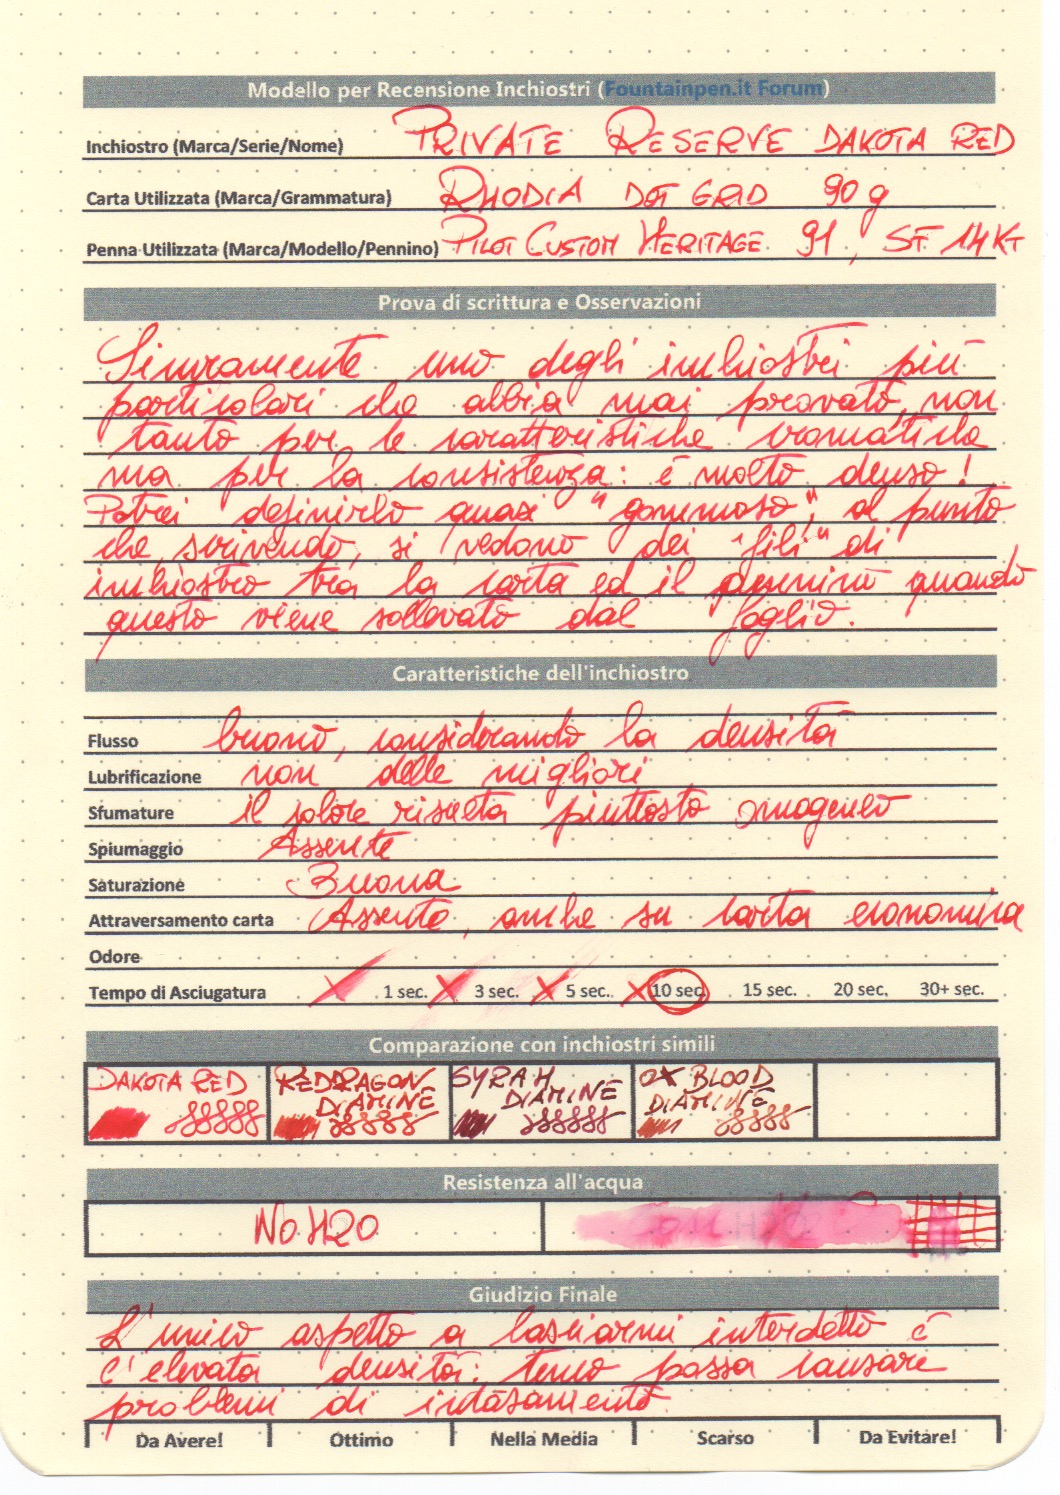 Modello per Recensione Inchiostri (Fountainpen.it Forum)
Inchiostro (Marca/Serie/Nome) PRIVATE RESERVE DAKOTA RED
Carta Utilizzata (Marca/Grammatura) RHODIA DOT GRID 90 g
Penna Utilizzata (Marca/Modello/Pennino) PILOT CUSTOM HERITAGE 91, SF 14KT
Prova di scrittura e Osservazioni
Sicuramente uno degli inchiostri più
particolari che abbia mai provato, non
tanto per le caratteristiche cromatiche
ma per la consistenza: è molto denso!
Potrei definirlo quasi "gommoso", al punto
che, scrivendo, si vedono dei "fili" di
inchiostro tra la carta ed il pennino quando
questo viene sollevato dal foglio.
Caratteristiche dell'inchiostro
Flusso buono, considerando la densità
Lubrificazione non delle migliori
Sfumature il colore risulta piuttosto omogeneo
Spiumaggio Assente
Saturazione Buona
Attraversamento carta Assente, anche su carta economica
Odore
Tempo di Asciugatura 1 sec. 3 sec. 5 sec. 10 sec. 15 sec. 20 sec. 30+ sec.
Comparazione con inchiostri simili
DAKOTA RED RED DRAGON DIAMINE SYRAH DIAMINE OX BLOOD DIAMINE
Resistenza all'acqua
No H2O CON H2O
Giudizio Finale
L'unico aspetto a lasciarmi interdetto è
l'elevata densità: temo possa causare
problemi di intasamento.
Da Avere! Ottimo Nella Media Scarso Da Evitare!